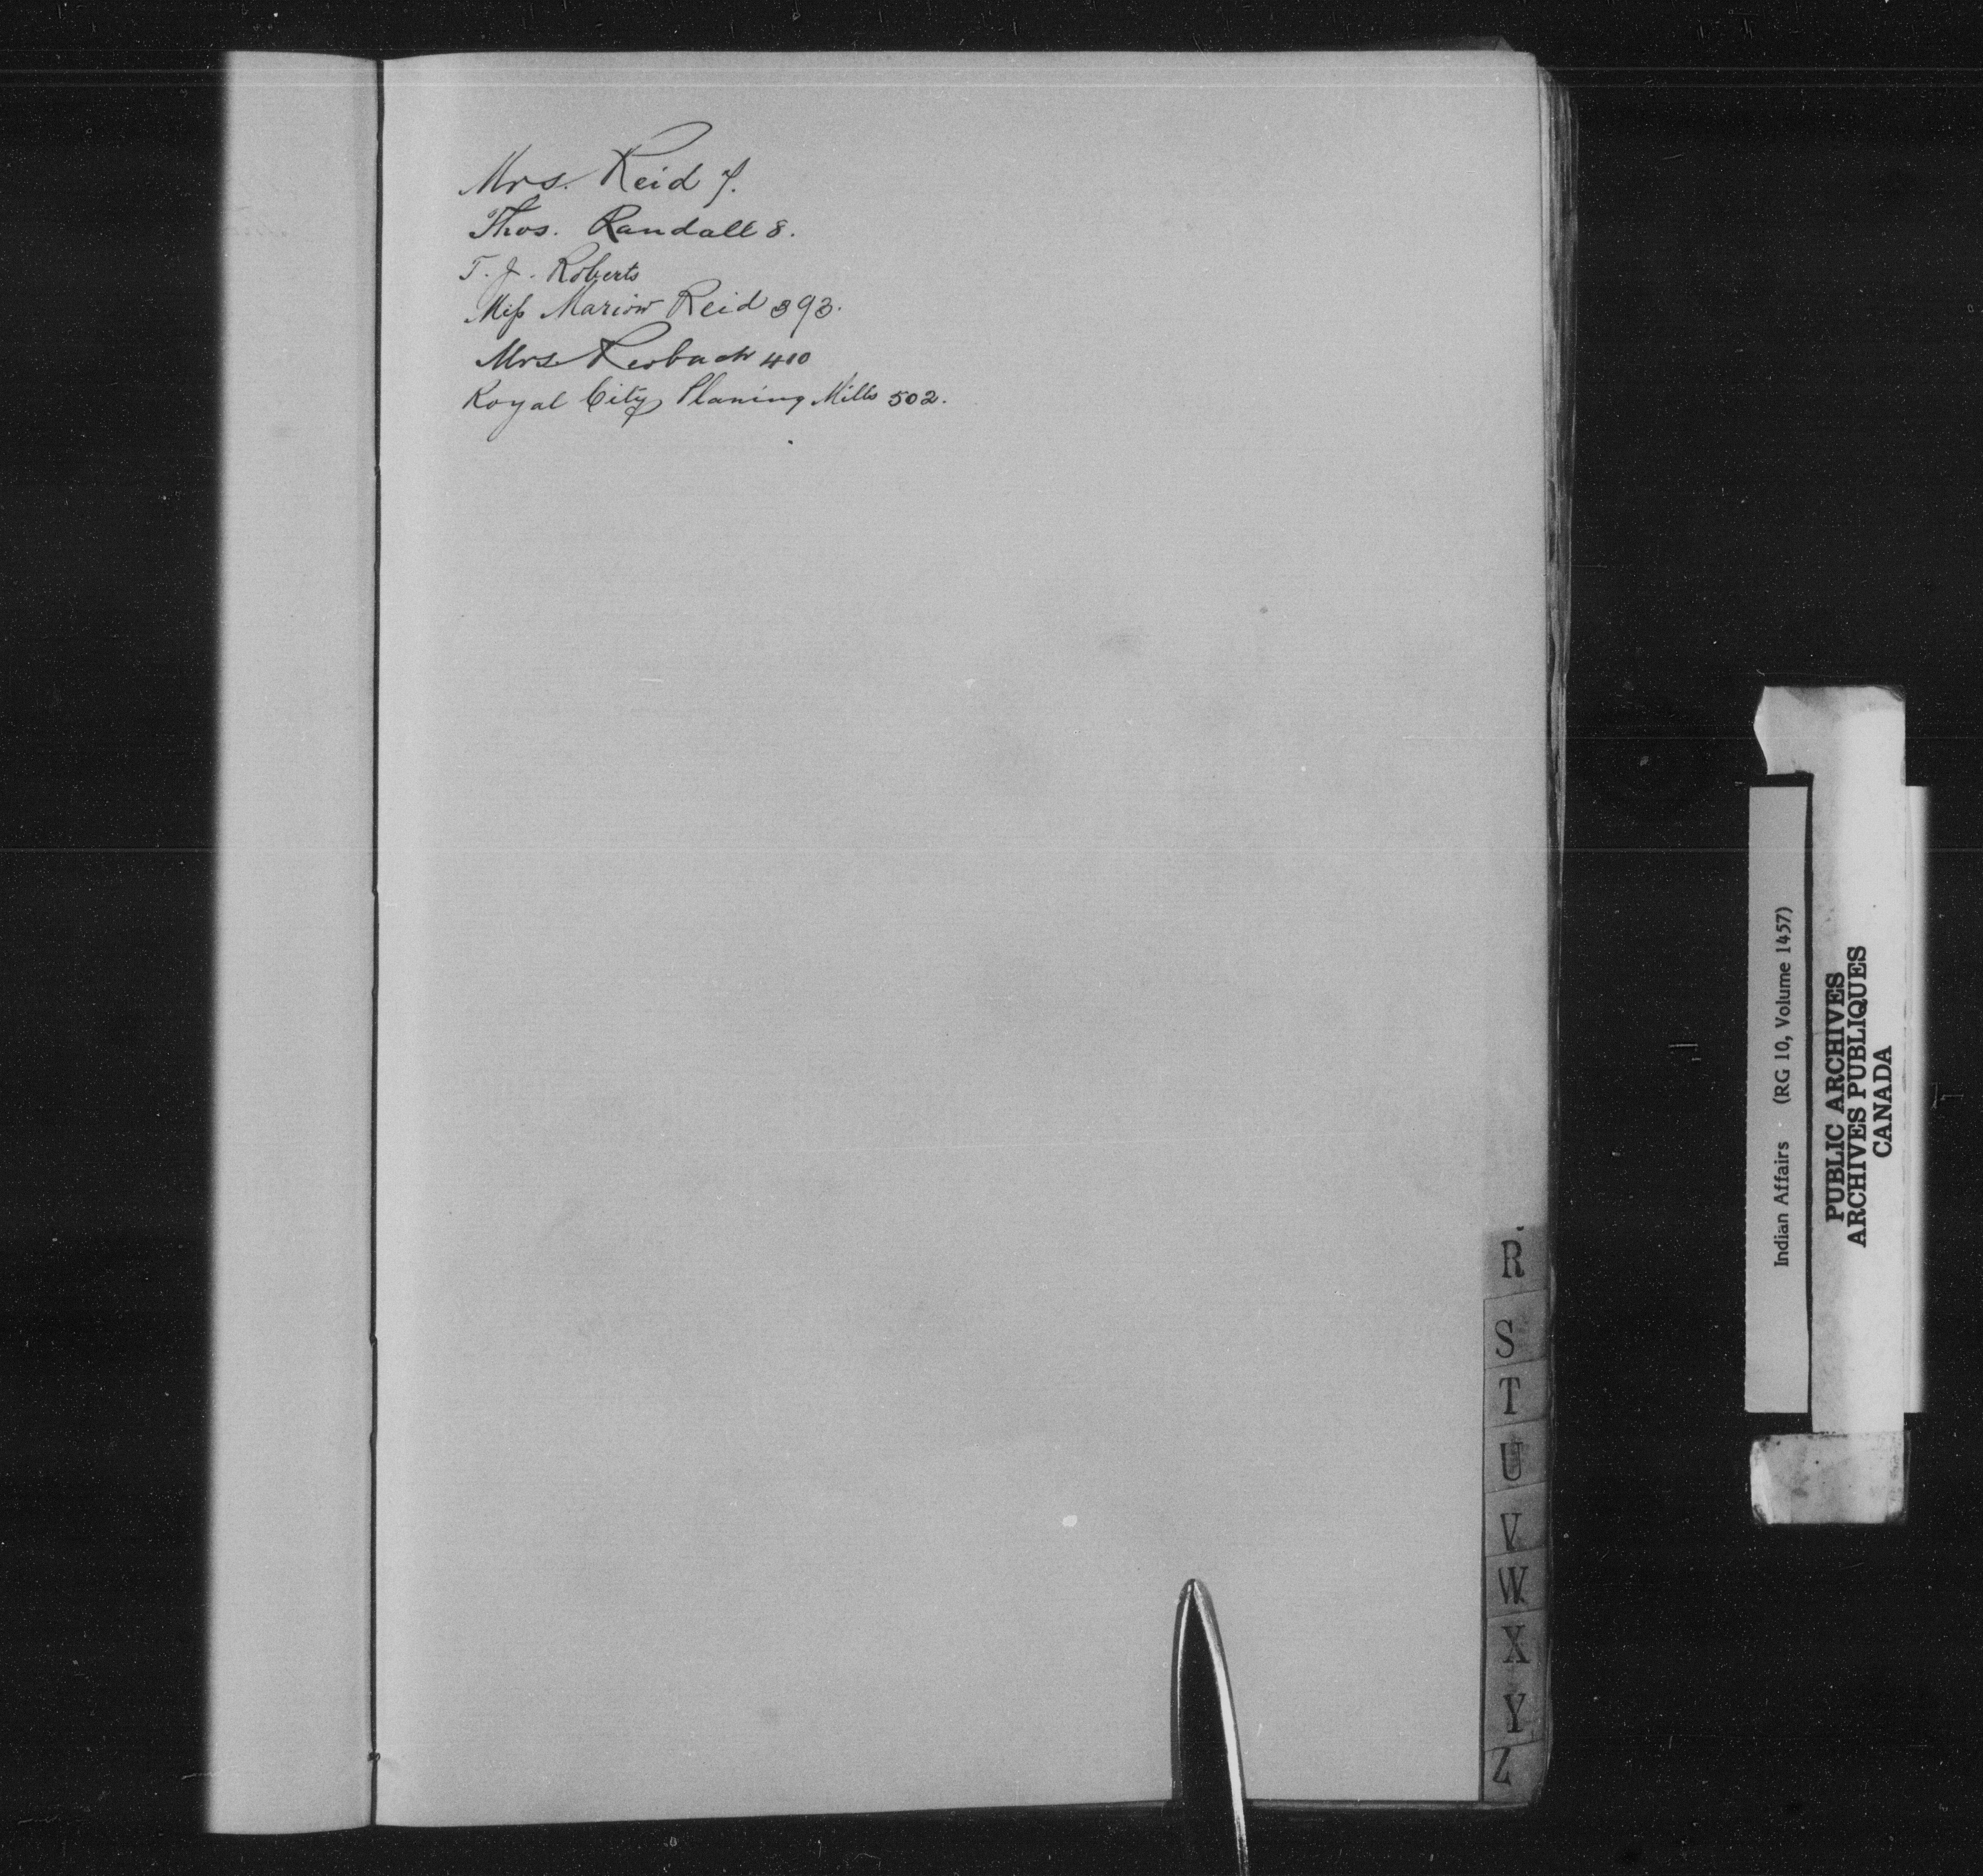 Mrs. Reid 7.
Thos. Randall 8.
T. J. Roberts
Miss Marion Reid 393.
Mrs. 410
Royal City Planing Mills 502.
R
S
T
U
V
W
X
Y
Z
Indian Affairs (RG 10, Volume 1457)
PUBLIC ARCHIVES
ARCHIVES PUBLIQUES
CANADA